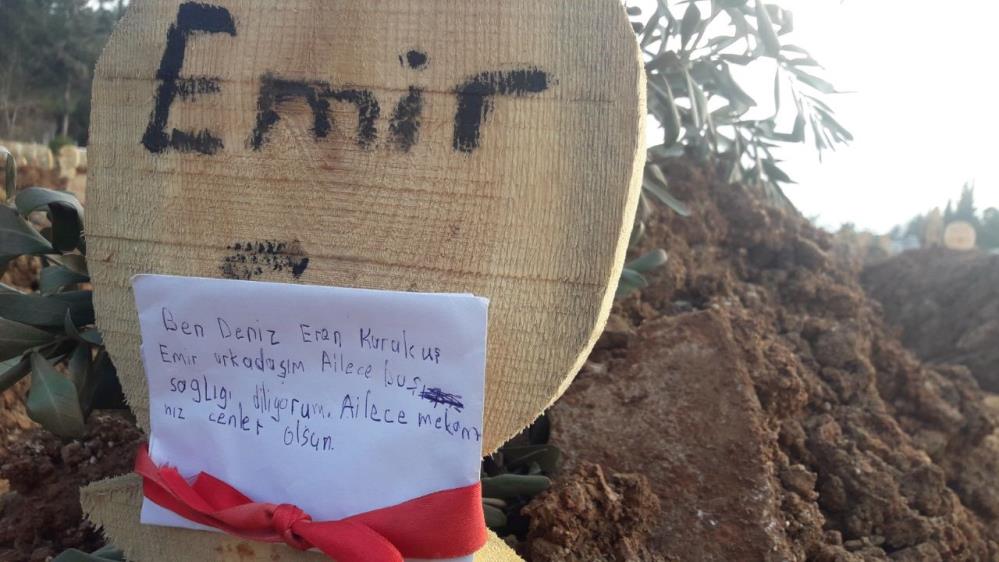 Emir
Ben Deniz Eren Kurukuş
Emir arkadaşım Ailece baş
sağlıgı diliyorum. Ailece mekanı
nız cenlet olsun.